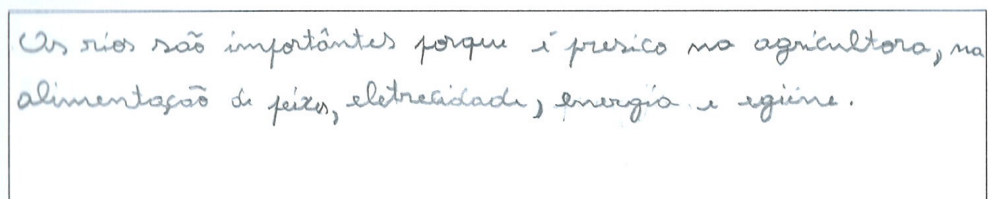 Os rios são importântes porque é presico na agricultora, na
alimentação de peixes, eletrecidade, energia e egiene.